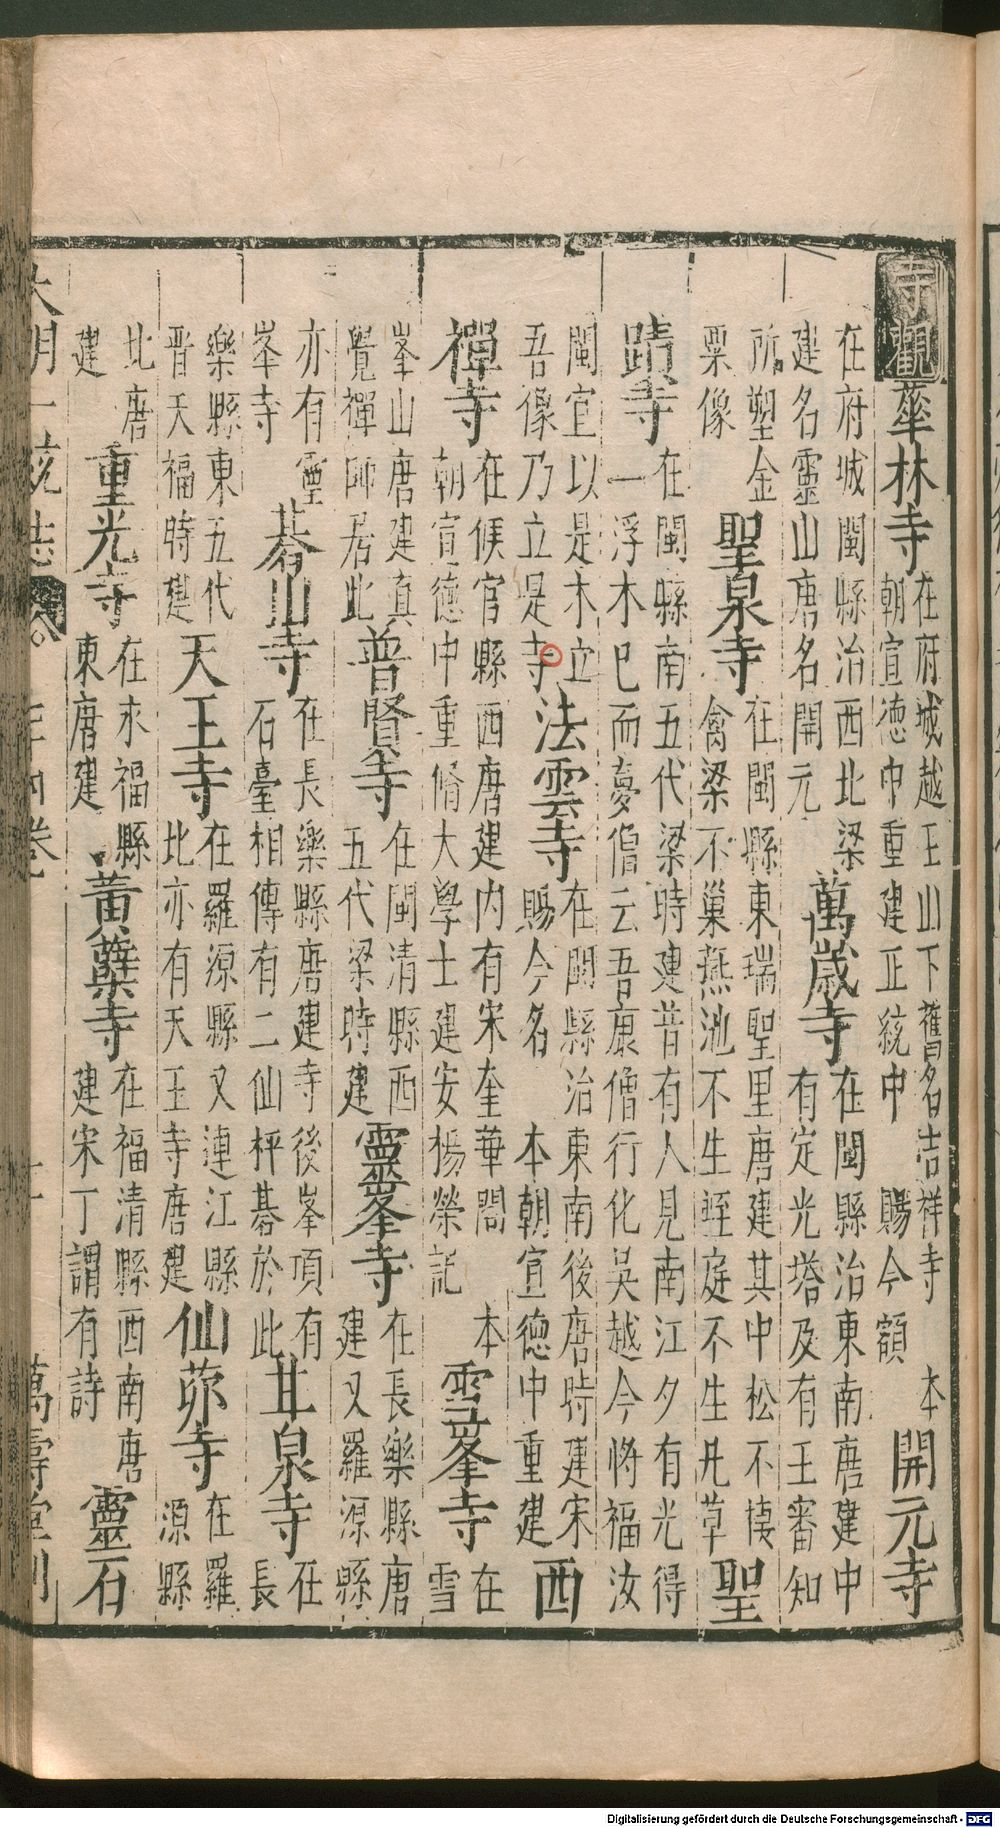 寺觀 華林寺 在府城越王山下舊名吉祥寺 本
朝宣德中重建正統中 賜今額 開元寺
在府城閩縣治西北梁
建名靈山唐名開元 萬歲寺 在閩縣治東南唐建中
有定光塔及有王審知
所塑金
粟像 聖泉寺 在閩縣東瑞聖里唐建其中松不棲
禽梁不巢燕池不生蛭庭不生凡草 聖
蹟寺 在閩縣南五代梁時建昔有人見南江夕有光得
一浮木已而夢僧云吾康僧行化吳越今將福汝
閩宜以是木立
吾像乃立是寺 法雲寺 在閩縣治東南後唐時建宋
賜今名 本朝宣德中重建 西
禪寺 在候官縣西唐建內有宋奎華閣 本
朝宣德中重脩大學士建安楊榮記 雪峯寺 在
雪
峯山唐建真
覺禪師居此 普賢寺 在閩清縣西
五代梁時建 靈峯寺 在長樂縣唐
建又羅源縣
亦有靈
峯寺 碁山寺 在長樂縣唐建寺後峯頂有
石臺相傳有二仙枰碁於此 甘泉寺 在
長
樂縣東五代
晋天福時建 天王寺 在羅源縣又連江縣
北亦有天王寺唐建 仙茆寺 在羅
源縣
北唐
建 重光寺 在永福縣
東唐建 黃蘗寺 在福清縣西南唐
建宋丁謂有詩 靈石
大明一統志 萬壽堂刊
Digitalisierung gefördert durch die Deutsche Forschungsgemeinschaft - DFG